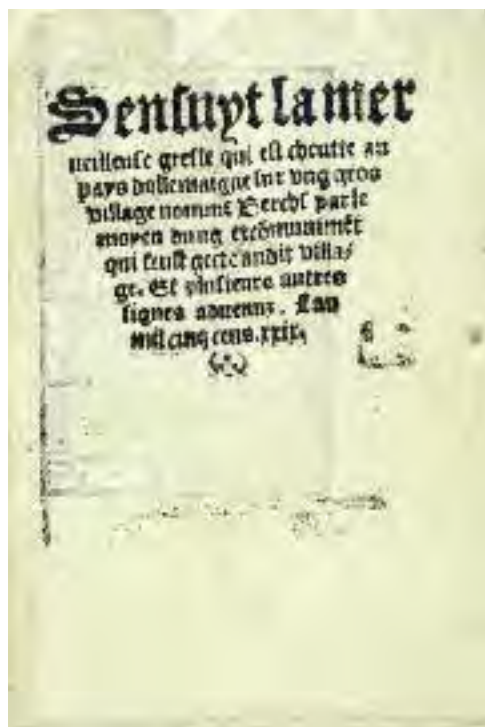 Sensuyt la mer
ueilleuse gresle qui est cheutte au
pays dallemaigne sur vng gros
village nomme par le
moyen dung excōmuniment
qui feust gecte audit villa/
ge. Et plusieurs autres
signes aduenuz. Lan
mil cinq cens. xxix.